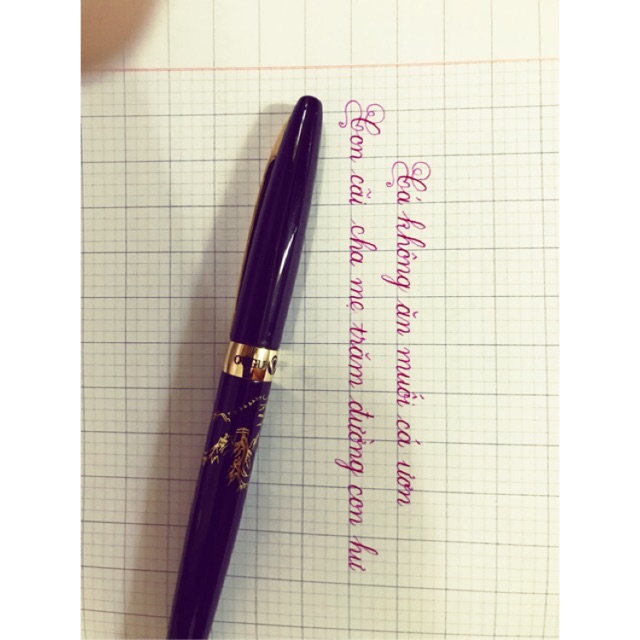 Cá không ăn muối cá ươn
Con cãi cha mẹ trăm đường con hư